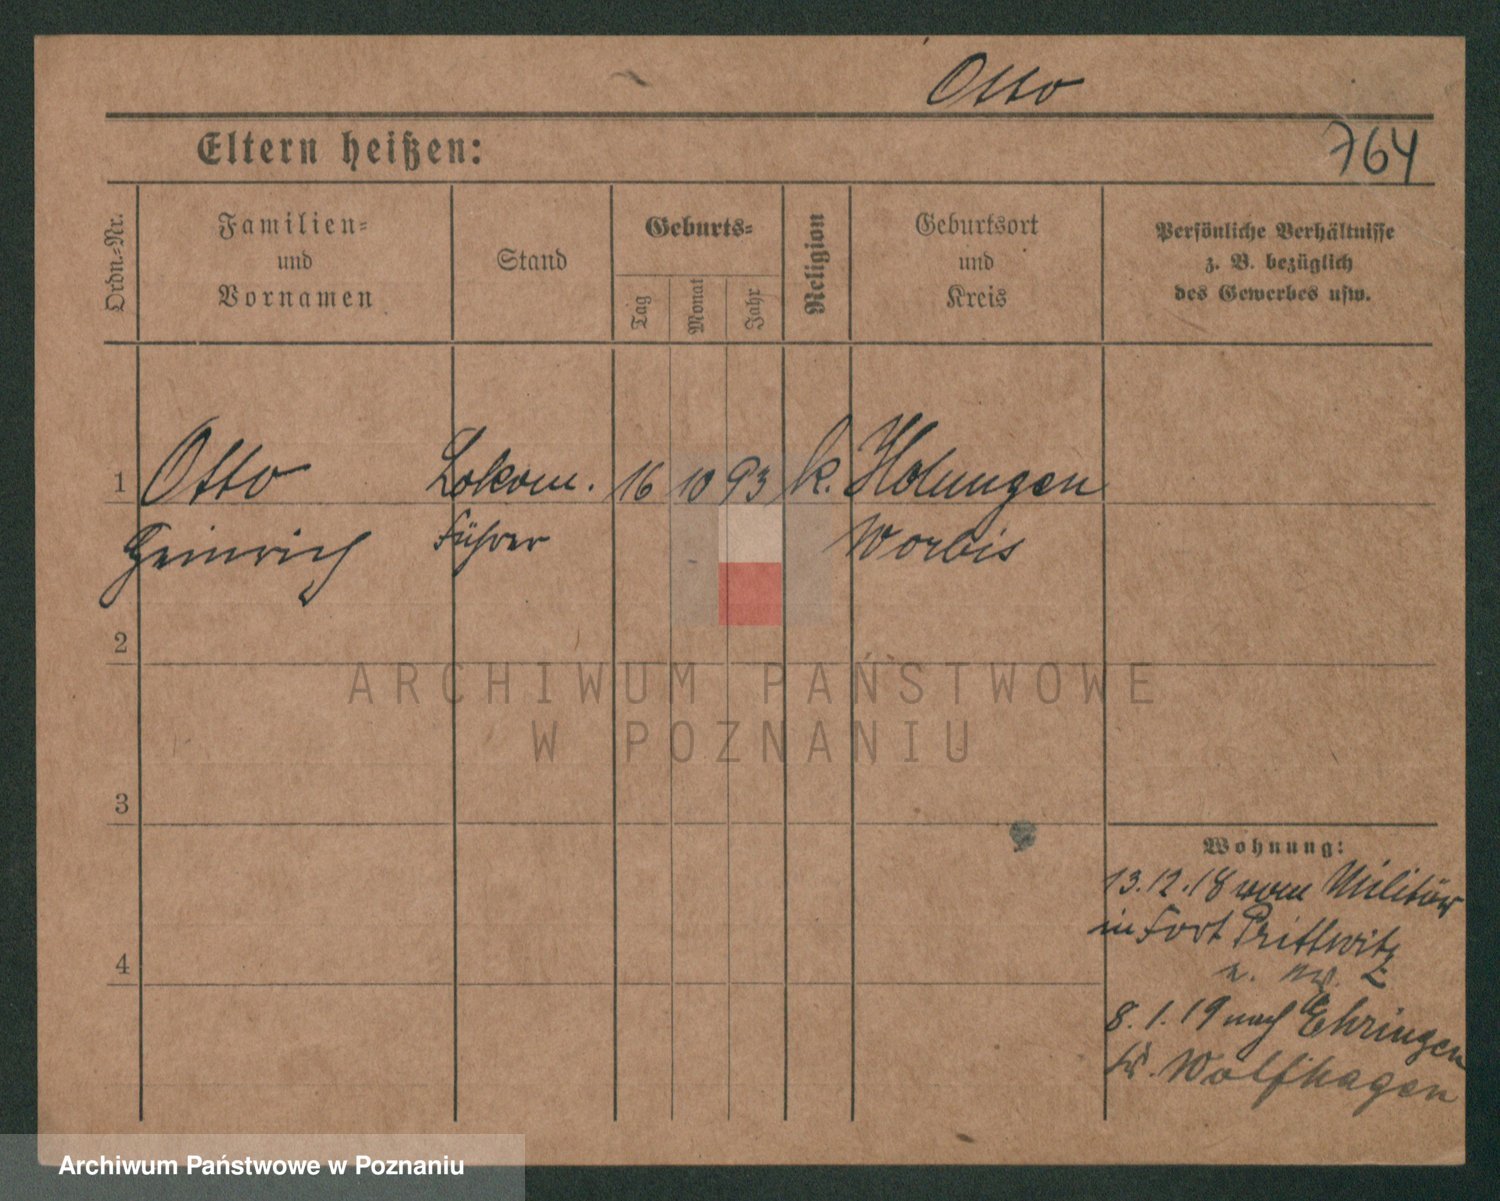 Otto
Eltern heißen:
764
Ordn.-Nr.
Familien-
und
Vornamen
Stand
Geburts-
Tag
Monat
Jahr
Religion
Geburtsort
und
Kreis
Persönliche Verhältnisse
z. B. bezüglich
des Gewerbes usw.
1 Otto Lokom. 16 10 93 k. Holungen
Heinrich Führer Worbis
2
ARCHIWUM PAŃSTWOWE
W POZNANIU
3
Wohnung:
13.12.18 vom Militär
in Fort Prittwitz
4
8.1.19 nach Ehringen
Kr. Wolfhagen
Archiwum Państwowe w Poznaniu